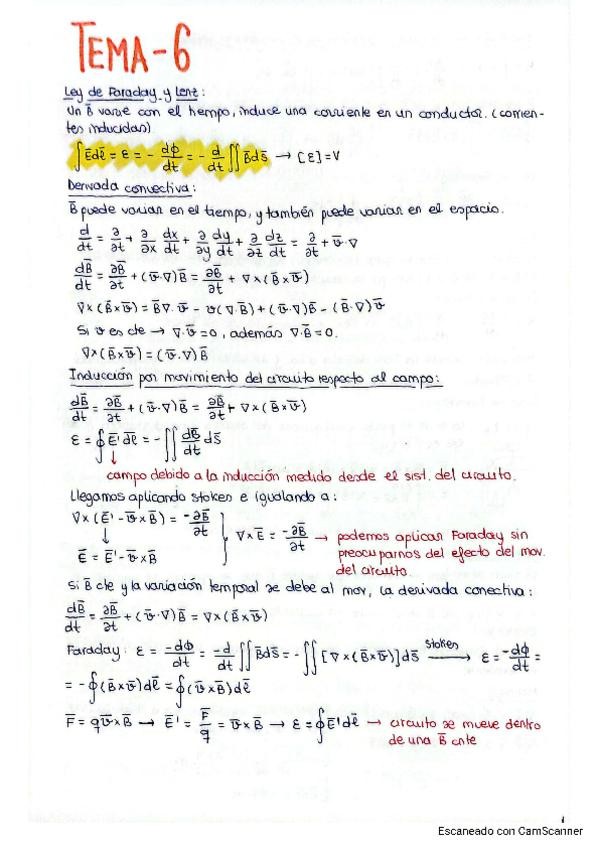 TEMA-6
Ley de Faraday y Lenz:
Un B̄ varie con el tiempo, induce una corriente en un conductor. (corrien-
tes inducidas)
∫Ēdl̄ = ε = - dϕ/dt = - d/dt ∬B̄ds̄ → [ε]=V
Derivada convectiva:
B̄ puede variar en el tiempo, y también puede variar en el espacio.
d/dt = ∂/∂t + ∂/∂x dx/dt + ∂/∂y dy/dt + ∂/∂z dz/dt = ∂/∂t + v̄·∇
dB̄/dt = ∂B̄/∂t + (v̄·∇)B̄ = ∂B̄/∂t + ∇×(B̄×v̄)
∇×(B̄×v̄) = B̄∇·v̄ - v(∇·B̄) + (v̄·∇)B̄ - (B̄·∇)v̄
Si v es cte → ∇·v̄=0, además ∇·B̄=0.
∇×(B̄×v̄) = (v̄·∇)B̄
Inducción por movimiento del circuito respecto al campo:
dB̄/dt = ∂B̄/∂t + (v̄·∇)B̄ = ∂B̄/∂t + ∇×(B̄×v̄)
ε = ∮Ē'dl̄ = -∬ dB̄/dt ds̄
↓
campo debido a la inducción medido desde el sist. del circuito.
Llegamos aplicando stokes e igualando a:
∇×(Ē'-v̄×B̄) = -∂B̄/∂t } ∇×Ē = -∂B̄/∂t → podemos aplicar Faraday sin
↓ preocuparnos del efecto del mov.
Ē = Ē'-v̄×B̄ del circuito
Si B̄ cte y la variación temporal se debe al mov, la derivada conectiva:
dB̄/dt = ∂B̄/∂t + (v̄·∇)B̄ = ∇×(B̄×v̄)
Faraday: ε = -dϕ/dt = -d/dt ∬B̄ds̄ = -∬[∇×(B̄×v̄)]ds̄ stokes → ε = -dϕ/dt =
= -∮(B̄×v̄)dl̄ = ∮(v̄×B̄)dl̄
F̄ = qv̄×B̄ → Ē' = F̄/q = v̄×B̄ → ε = ∮Ē'dl̄ → circuito se mueve dentro
de una B̄ cnte
1
Escaneado con CamScanner